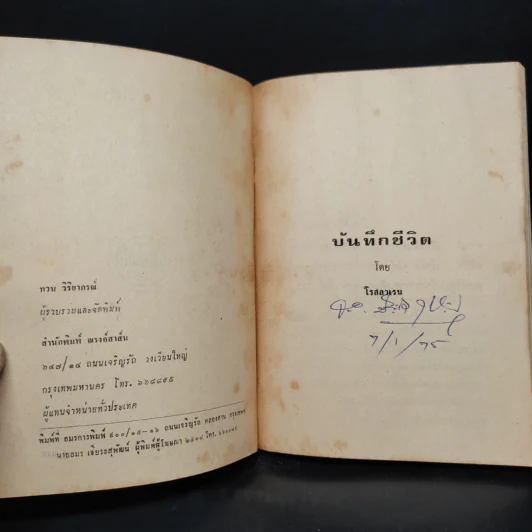 ทวน วิริยาภรณ์
ผู้รวบรวมและจัดพิมพ์
สำนักพิมพ์ ผวงค์สาส์น
๖๔๗/๑๔ ถนนเจริญรัถ วงเวียนใหญ่
กรุงเทพมหานคร โทร. ๖๖๔๘๙๕
ผู้แทนจำหน่ายทั่วประเทศ
พิมพ์ที่ อมรการพิมพ์ ๕๐๐/๑๕-๑๖ ถนนเจริญรัถ คลองสาน กรุงเทพฯ
นายอมร ผู้พิมพ์ผู้โฆษณา โทร.
บันทึกชีวิต
โดย
โรสลาเรน
7/1/75